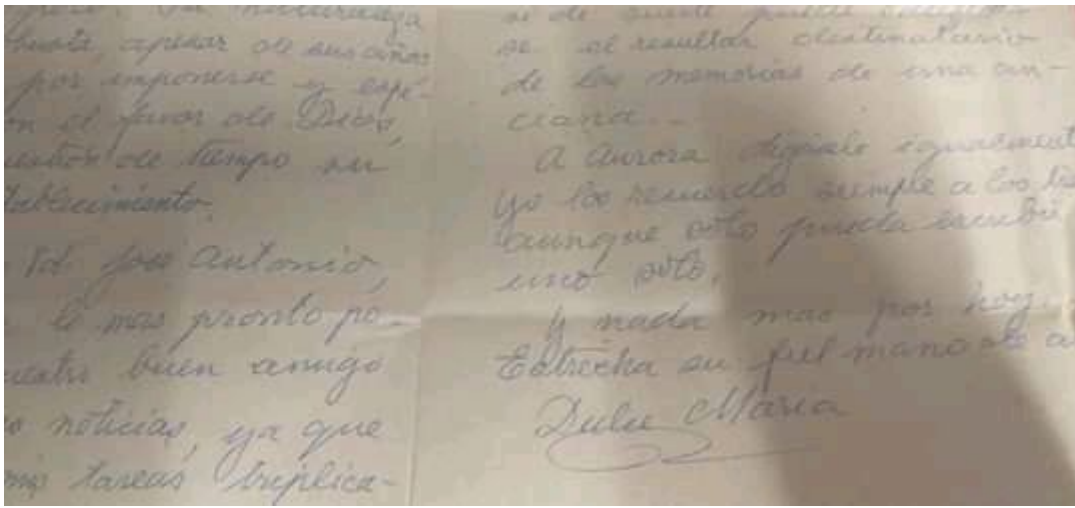 apesar de sus años
por imponerse y espe-
el favor de Dios,
de tiempo su
tablecimiento.
Vd. José Antonio,
lo mas pronto po-
buen amigo
noticias, ya que
mis tareas triplica-
de
se el resultar destinatario
de las memorias de una an-
ciana..
A Aurora dígale igualment
yo los recuerdo siempre a los
aunque solo pueda escribi
uno solo.
Y nada mas por hoy.
Estrecha su fiel mano de a
Dulce María